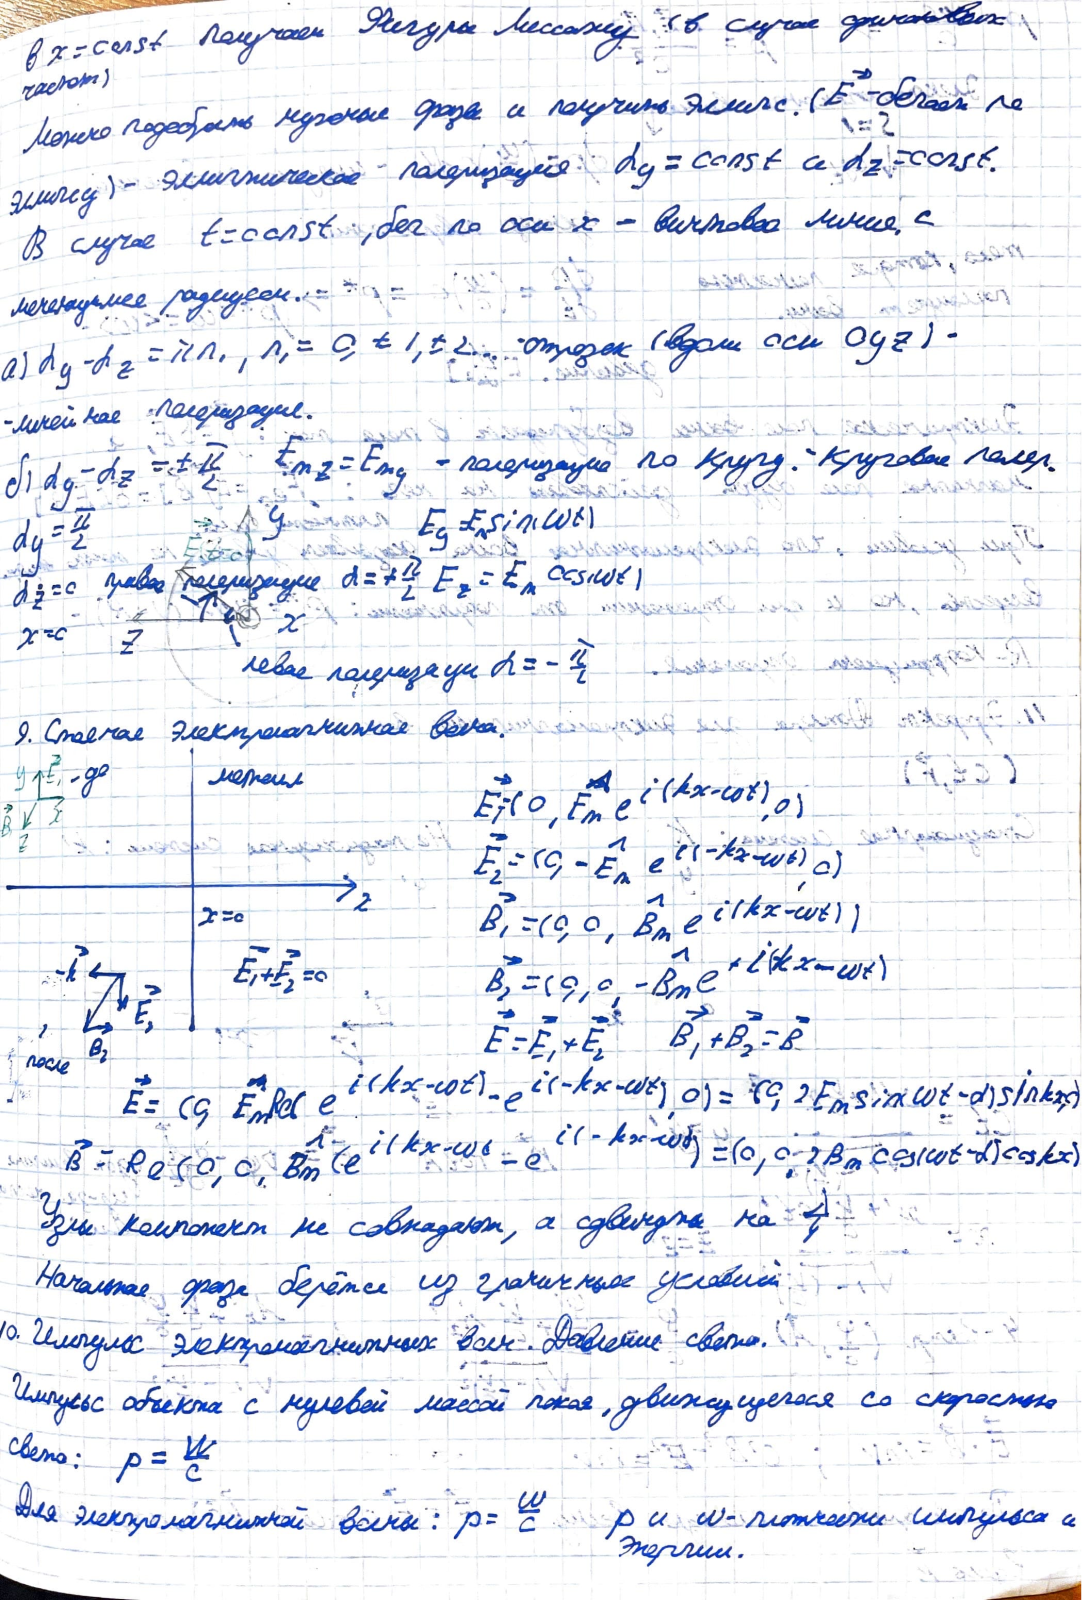 в x = const получаем Фигуры Лиссажу (в случае одинаковых
частот)
Можно подобрать нужные фазы и получить эллипс. (E⃗ - бегает по
эллипсу) - эллиптическая поляризация α_y = const и α_z = const.
В случае t = const, бег по оси x - винтовая линия, с
меняющимся радиусом.
а) α_y - α_z = πn, n = 0, ±1, ±2... - отрезок (вдоль оси OyZ) -
- линейная поляризация.
б) α_y - α_z = ± π/2 E_mz = E_my - поляризация по кругу. - Круговая поляр.
α_y = π/2 y E_y = E_m sin(ωt)
α_z = 0 правая поляризация α = + π/2 E_z = E_m cos(ωt)
x = 0 Z x
левая поляризация α = - π/2
9. Стоячая электромагнитная волна.
y E⃗₁ - до металл
B⃗ z x E⃗₁ = (0, Ê_m e^{i(kx-ωt)}, 0)
E⃗₂ = (0, - Ê_m e^{i(-kx-ωt)}, 0)
x
x = 0 B⃗₁ = (0, 0, B̂_m e^{i(kx-ωt)})
-k⃗ E⃗₁ + E⃗₂ = 0 B⃗₂ = (0, 0, -B̂_m e^{+i(kx-ωt)})
E⃗₂
после B₂ E⃗ = E⃗₁ + E⃗₂ B⃗₁ + B⃗₂ = B⃗
E⃗ = (0, Ê_m Re( e^{i(kx-ωt)} - e^{i(-kx-ωt)}, 0) = (0, 2E_m sin(ωt-α) sin kx, 0)
B⃗ = Re(0, 0, B̂_m (e^{i(kx-ωt} - e^{i(-kx-ωt)}) = (0, 0, 2B_m cos(ωt-α) cos kx)
Узлы компонент не совпадают, а сдвинуты на λ/4
Начальная фаза берётся из граничных условий
10. Импульс электромагнитных волн. Давление света.
Импульс объекта с нулевой массой покоя, движущегося со скоростью
света: p = W/c
Для электромагнитной волны: p = w/c p и w - плотности импульса и
энергии.